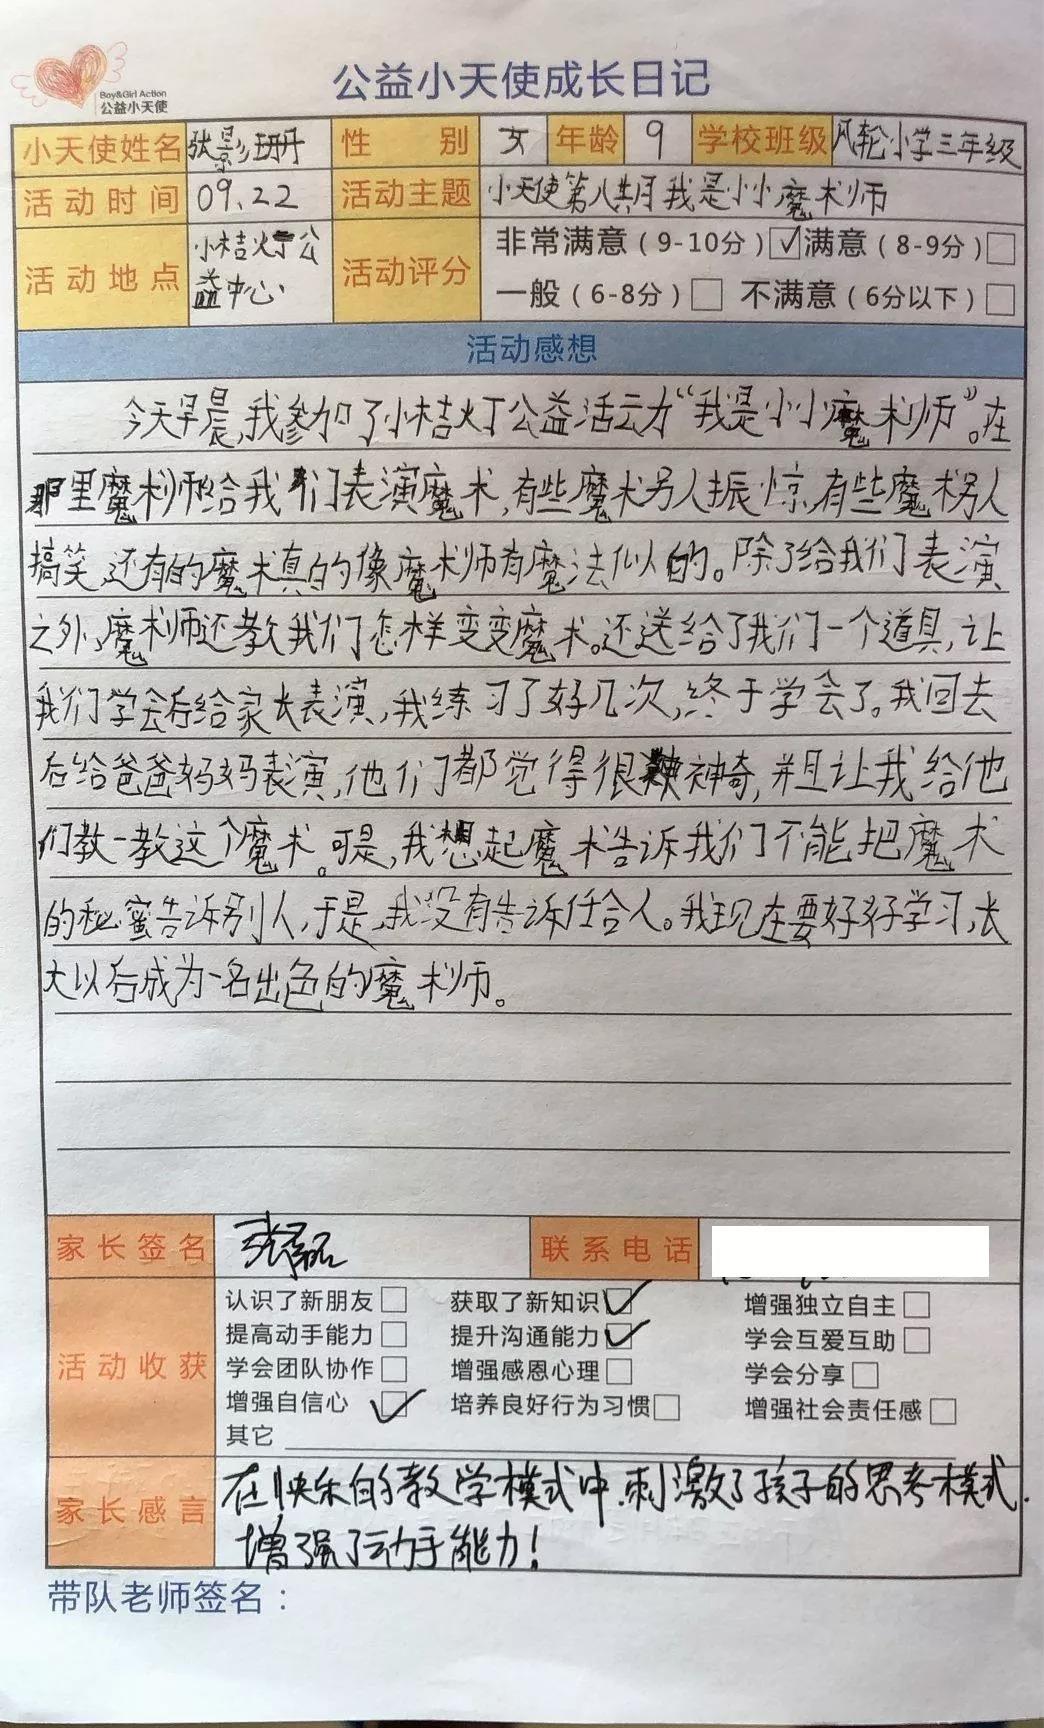 Boy&Girl Action
公益小天使
公益小天使成长日记
小天使姓名 张影珊 性别 女 年龄 9 学校班级 凤轮小学三年级
活动时间 09.22 活动主题 小天使第八期我是小小魔术师
活动地点 小桔灯公益中心 活动评分 非常满意（9-10分）☑满意（8-9分）□
一般（6-8分）□ 不满意（6分以下）□
活动感想
今天早晨,我参加了小桔灯公益活动“我是小小魔术师”。在
那里魔术师给我们表演魔术,有些魔术另人振惊,有些魔术另人
搞笑,还有的魔术真的像魔术师有魔法似的。除了给我们表演
之外,魔术师还教我们怎样变变魔术。还送给了我们一个道具,让
我们学会后给家长表演,我练习了好几次,终于学会了。我回去
后给爸爸妈妈表演,他们都觉得很神奇,并且让我给他
们教一教这个魔术。可是,我想起魔术告诉我们不能把魔术
的秘蜜告诉别人,于是,我没有告诉任合人。我现在要好好学习,长
大以后成为一名出色的魔术师。
家长签名 联系电话
活动收获
认识了新朋友□ 获取了新知识☑ 增强独立自主□
提高动手能力□ 提升沟通能力☑ 学会互爱互助□
学会团队协作□ 增强感恩心理□ 学会分享□
增强自信心☑ 培养良好行为习惯□ 增强社会责任感□
其它
家长感言 在快乐的教学模式中.刺激了孩子的思考模式.
增强了动手能力！
带队老师签名：